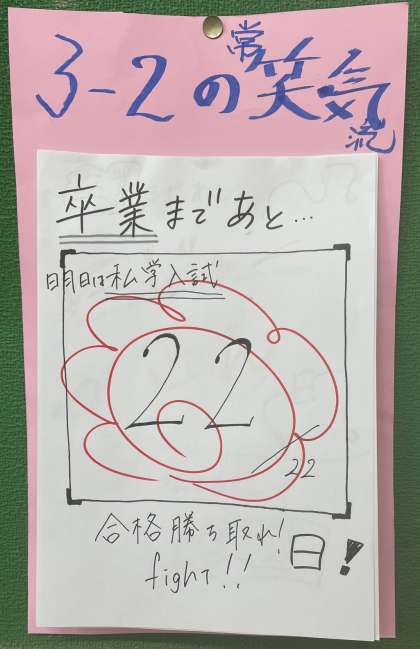 3-2の常笑気流
卒業まであと...
明日は私学入試
22
22
合格勝ち取れ!
日!
fight!!